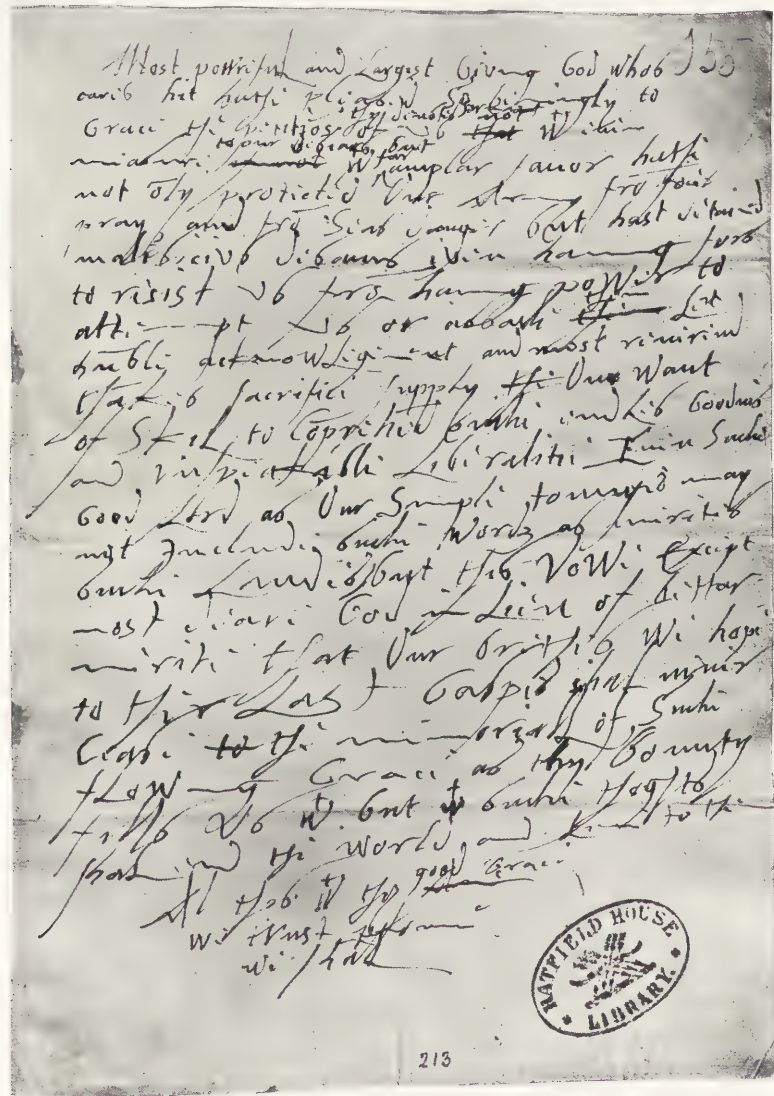 155
Most powrifull and Largest Giving God whos
earis hit hathe plesid so beningly to
Grace the petitions of us thy devotes not that With even
miasure to our disiars but With far amplar favor hathe
not õly protectid Our army frõ foes
pray and frõ Seas danger but hast detained
malicius
to resist us frõ having poWer to
attempt us or Let
hũble acknowLigement and most reverend
thankes sacrifice supply the Our Want
of Skil to Cõprehend suche endLes Goodnis
and unspeakable Liberalitie Even Suche
Good Lord as Our Simple tounges may
not Include suche Words as merites
suche Laudes but this VoWe Except
most deare God in Lieu of bettar
merite that Our brethes We hope
to ther Last Gaspes shal never
Cease to the memorial of Suche
floWing Grace as thy Bounty
fills us wt but wt suche thogts
shal end the World and to the
Al this wt thy good Grace
We trust
We shal
HATFIELD HOUSE LIBRARY.
213